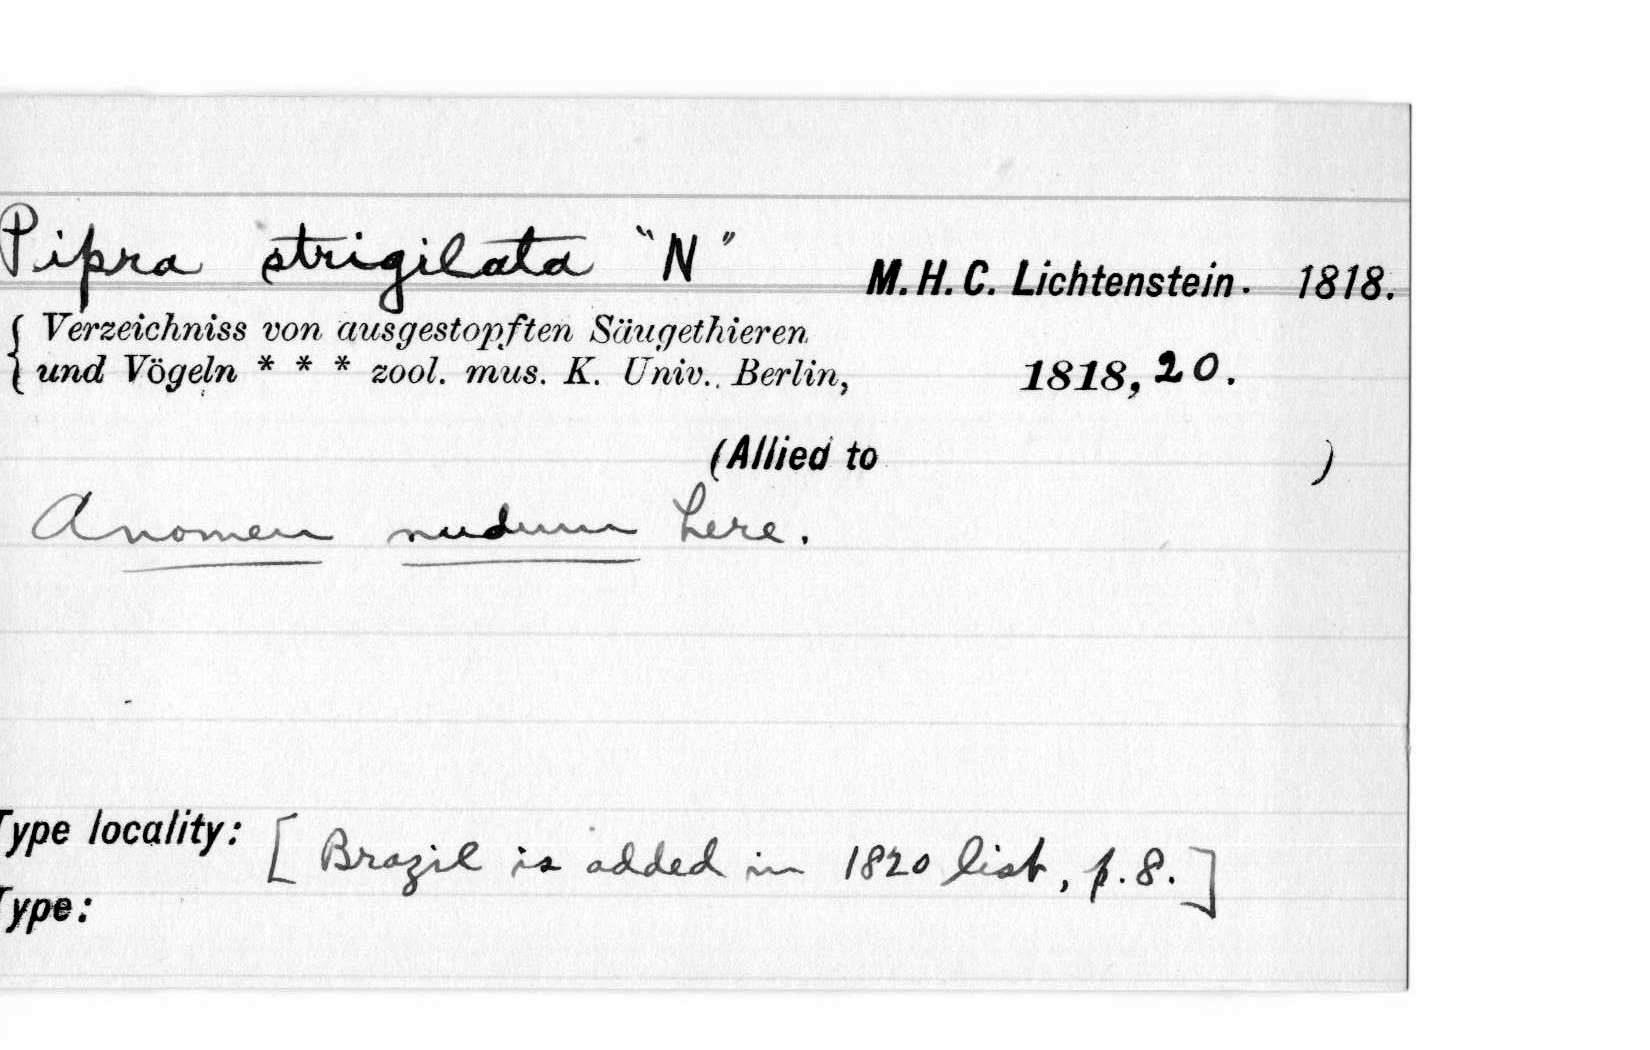 Pipra strigilata "N" M. H. C. Lichtenstein. 1818.
Verzeichniss von ausgestopften Säugethieren
und Vögeln * * * zool. mus. K. Univ. Berlin, 1818, 20.
(Allied to )
A nomen nudum here.
Type locality: [Brazil is added in 1820 list, p. 8.]
Type: